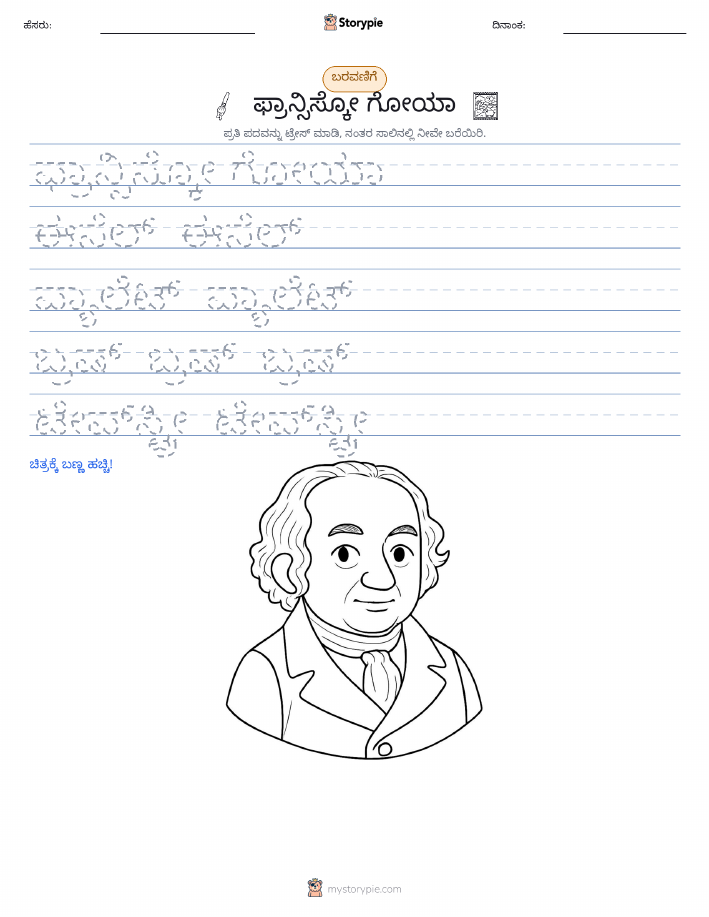 ಹೆಸರು: Storypie ದಿನಾಂಕ:
ಬರವಣಿಗೆ
ಫ್ರಾನ್ಸಿಸ್ಕೋ ಗೋಯಾ
ಪ್ರತಿ ಪದವನ್ನು ಟ್ರೇಸ್ ಮಾಡಿ, ನಂತರ ಸಾಲಿನಲ್ಲಿ ನೀವೇ ಬರೆಯಿರಿ.
ಫ್ರಾನ್ಸಿಸ್ಕೋ ಗೋಯಾ
ಈಸೆಲ್ ಈಸೆಲ್
ಪ್ಯಾಲೆಟ್ ಪ್ಯಾಲೆಟ್
ಬ್ರಷ್ ಬ್ರಷ್ ಬ್ರಷ್
ಟೇಪ್‌ಸ್ಟ್ರಿ ಟೇಪ್‌ಸ್ಟ್ರಿ
ಚಿತ್ರಕ್ಕೆ ಬಣ್ಣ ಹಚ್ಚಿ!
mystorypie.com